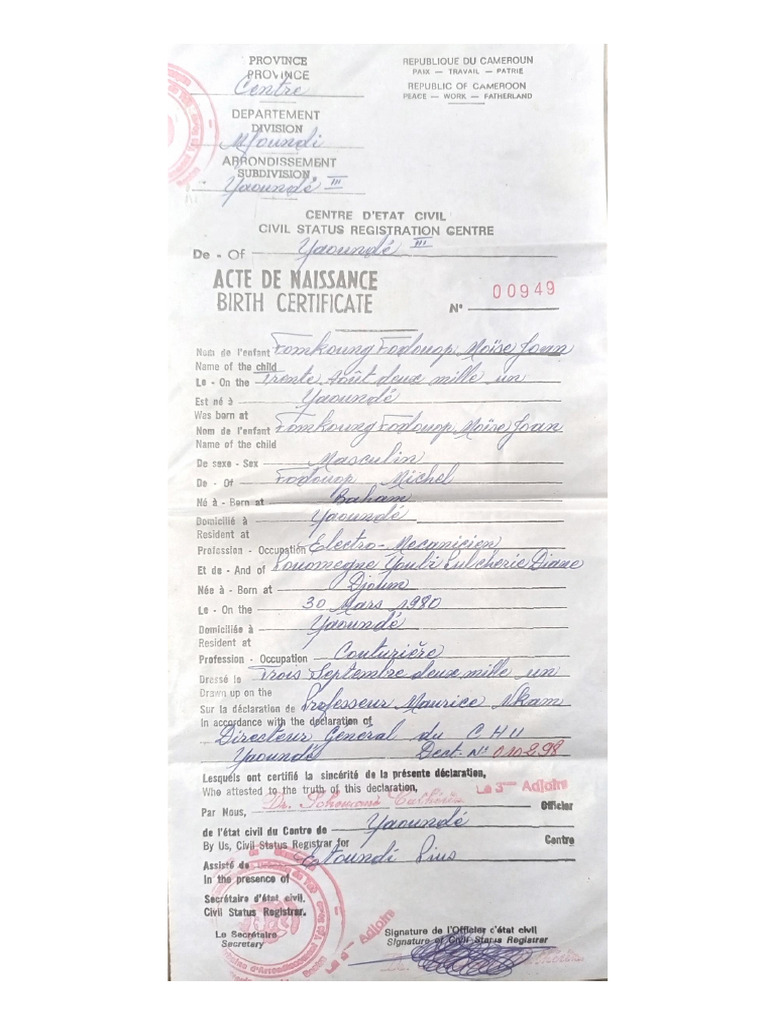 PROVINCE
PROVINCE
Centre
DEPARTEMENT
DIVISION
Mfoundi
ARRONDISSEMENT
SUBDIVISION
Yaoundé III
REPUBLIQUE DU CAMEROUN
PAIX — TRAVAIL — PATRIE
REPUBLIC OF CAMEROON
PEACE — WORK — FATHERLAND
CENTRE D'ETAT CIVIL
CIVIL STATUS REGISTRATION CENTRE
De - Of Yaoundé III
ACTE DE NAISSANCE
BIRTH CERTIFICATE
N° 00949
Nom de l'enfant Fomkoung Fodouop Moïse Joan
Name of the child
Le - On the trente Août deux mille un
Est né à Yaoundé
Was born at
Nom de l'enfant Fomkoung Fodouop Moïse Joan
Name of the child
De sexe - Sex Masculin
De - Of Fodouop Michel
Né à - Born at Baham
Domicilié à Yaoundé
Resident at
Profession - Occupation Electro-Mecanicien
Et de - And of Youbi Pulcherie Diane
Née à - Born at Djoum
Le - On the 30 Mars 1980
Domiciliée à Yaoundé
Resident at
Profession - Occupation Couturière
Dressé le Trois Septembre deux mille un
Drawn up on the
Sur la déclaration de Professeur Maurice Nkam
In accordance with the declaration of
Directeur Général du C.H.U
Yaoundé Dect. N° 010298
Lesquels ont certifié la sincérité de la présente déclaration,
Who attested to the truth of this declaration,
Le 3ème Adjoint
Par Nous, Dr. Officier
de l'état civil du Centre de Yaoundé
By Us, Civil Status Registrar for Centre
Assisté de Etoundi Pius
In the presence of
Secrétaire d'état civil.
Civil Status Registrar.
Le Secrétaire
Secretary
Le 3ème Adjoint
Signature de l'Officier d'état civil
Signature of Civil Status Registrar